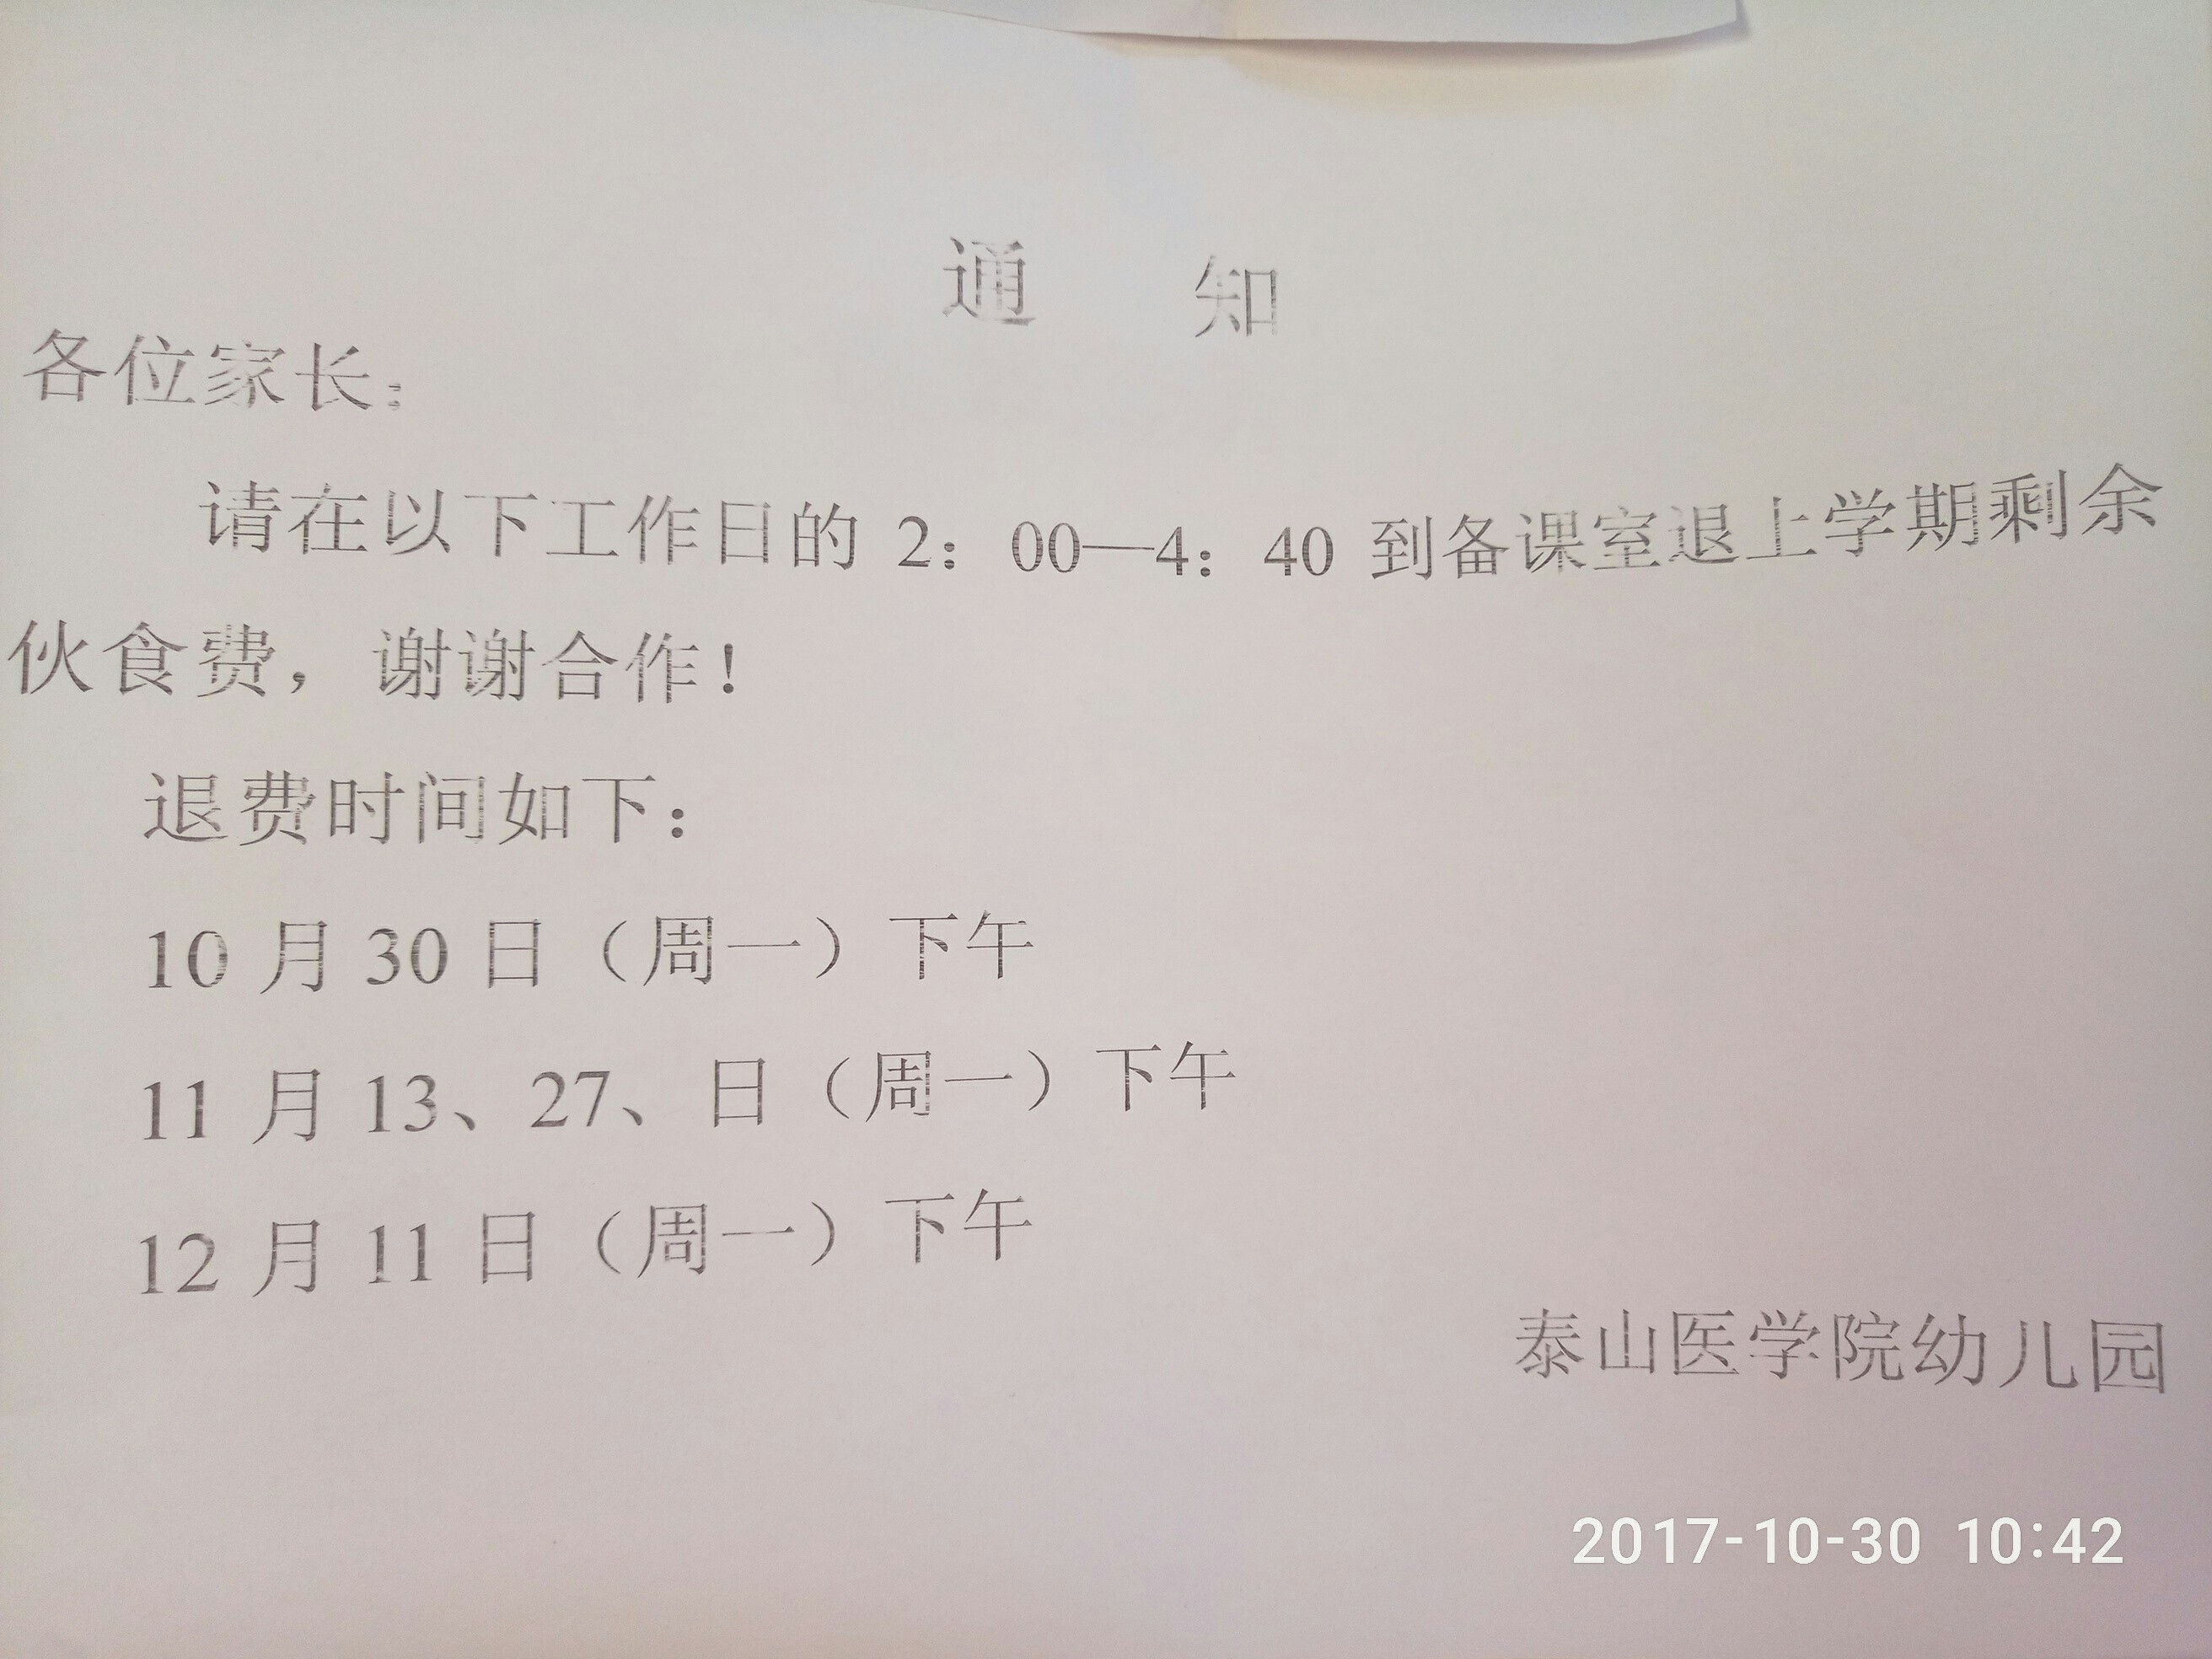 通 知
各位家长：
请在以下工作日的 2：00—4：40 到备课室退上学期剩余
伙食费，谢谢合作！
退费时间如下：
10 月 30 日（周一）下午
11 月 13、27、日（周一）下午
12 月 11 日（周一）下午
泰山医学院幼儿园
2017-10-30 10:42